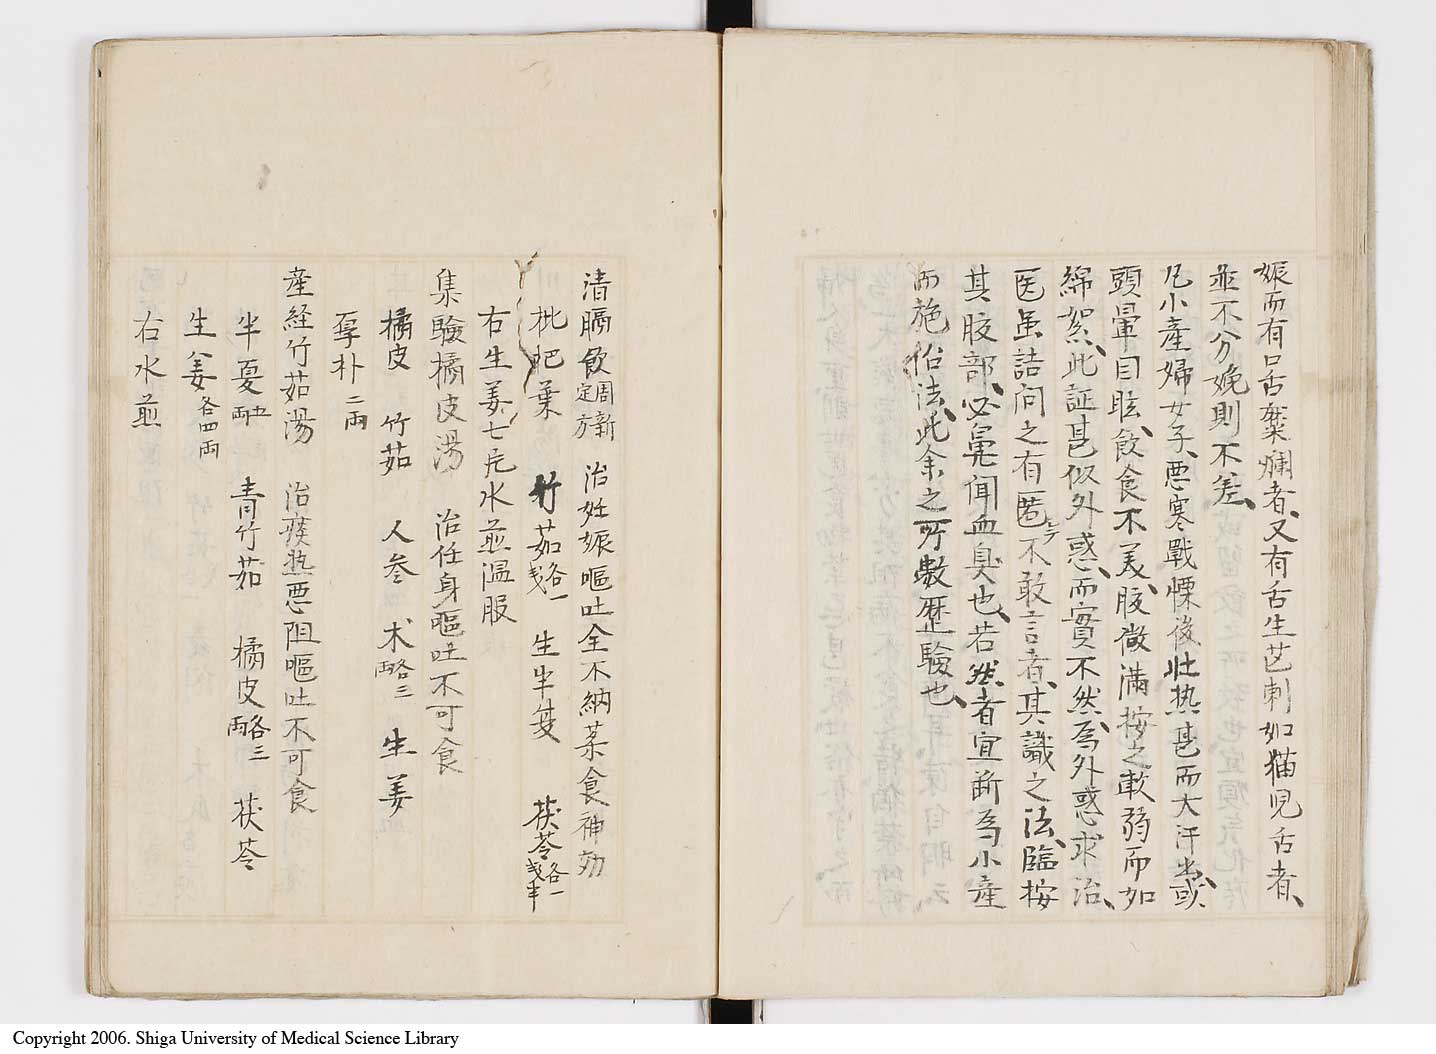 娠而有口舌糜爛者、又有舌生芒刺如猫児舌者、
並不分娩則不差、
凡小産婦女子、悪寒戰慄後壮热甚而大汗出、或
頭暈目眩、飲食不美、腹滿按之軟弱而如
綿絮、此証甚似外惑、而實不然、為外惑求治、
医虽詰问之有匿テ不敢言者、其識之法、臨按
其腹部、必鼻闻血臭也、若然者宜断為小産
而施治法、此余之所數歴驗也、
清膈飲 周新定方 治姙娠嘔吐全不納菜食神効
枇杷葉 竹茹各一戔 生半夏 茯苓各一戔半
右生姜七片水煎温服
集驗橘皮湯 治任身嘔吐不可食
橘皮 竹茹 人参 术各三両 生姜
厚朴二両
産経竹茹湯 治痰热悪阻嘔吐不可食
半夏五両 青竹茹 橘皮各三両 茯苓
生姜各四両
右水煎
Copyright 2006. Shiga University of Medical Science Library